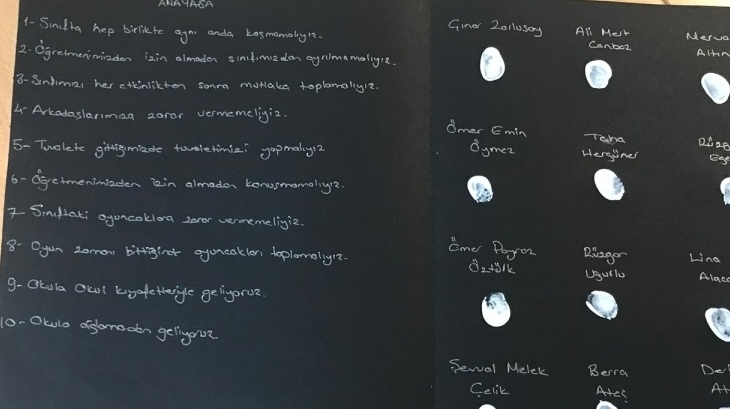 ANAYASA
1- Sınıfta hep birlikte aynı anda koşmamalıyız.
2- Öğretmenimizden izin almadan sınıfımızdan ayrılmamalıyız.
3- Sınıfımızı her etkinlikten sonra mutlaka toplamalıyız.
4- Arkadaşlarımıza zarar vermemeliyiz.
5- Tuvalete gittiğimizde tuvaletimizi yapmalıyız
6- Öğretmenimizden izin almadan konuşmamalıyız.
7- Sınıftaki oyuncaklara zarar vermemeliyiz.
8- Oyun zamanı bittiğinde oyuncakları toplamalıyız.
9- Okula okul kıyafetleriyle geliyoruz.
10- Okula ağlamadan geliyoruz.
Ali Mert
Canbaz
Ömer Emin
Öymez
Hergüner
Ömer Poyraz
Öztürk
Rüzgar
Uğurlu
Lina
Şevval Melek
Çelik
Berra
Ateş